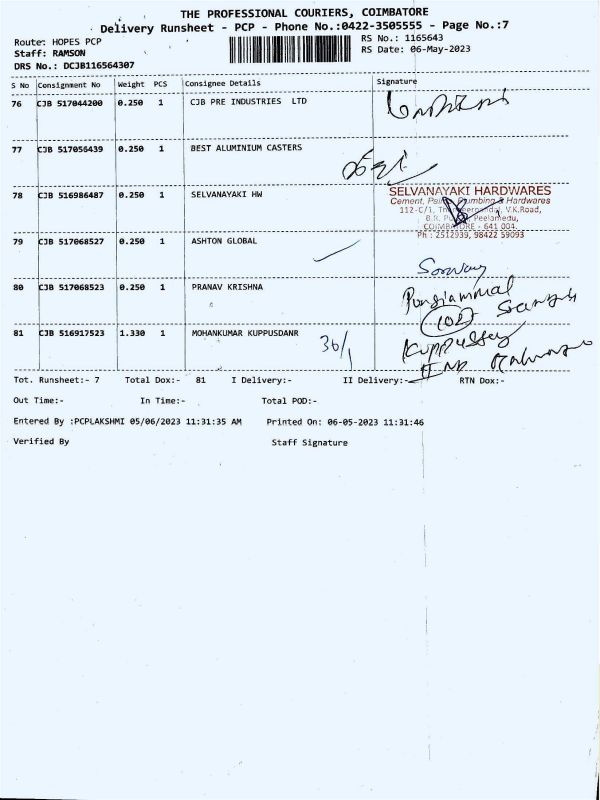 THE PROFESSIONAL COURIERS, COIMBATORE
Delivery Runsheet - PCP - Phone No.:0422-3505555 - Page No.:7
Route: HOPES PCP RS No.: 1165643
Staff: RAMSON RS Date: 06-May-2023
DRS No.: DCJB116564307
S No Consignment No Weight PCS Consignee Details Signature
76 CJB 517044200 0.250 1 CJB PRE INDUSTRIES LTD
77 CJB 517056439 0.250 1 BEST ALUMINIUM CASTERS
78 CJB 516986487 0.250 1 SELVANAYAKI HW
SELVANAYAKI HARDWARES
Cement, Paints, Plumbing & Hardwares
112-C/1, V.K.Road,
Peelamedu,
COIMBATORE - 641 004.
Ph : 2512939, 98422 59093
79 CJB 517068527 0.250 1 ASHTON GLOBAL
80 CJB 517068523 0.250 1 PRANAV KRISHNA
Pongiammal
102
81 CJB 516917523 1.330 1 MOHANKUMAR KUPPUSDANR
36/1
Kuppusamy
Tot. Runsheet:- 7 Total Dox:- 81 I Delivery:- II Delivery:- RTN Dox:-
Out Time:- In Time:- Total POD:-
Entered By :PCPLAKSHMI 05/06/2023 11:31:35 AM Printed On: 06-05-2023 11:31:46
Verified By Staff Signature